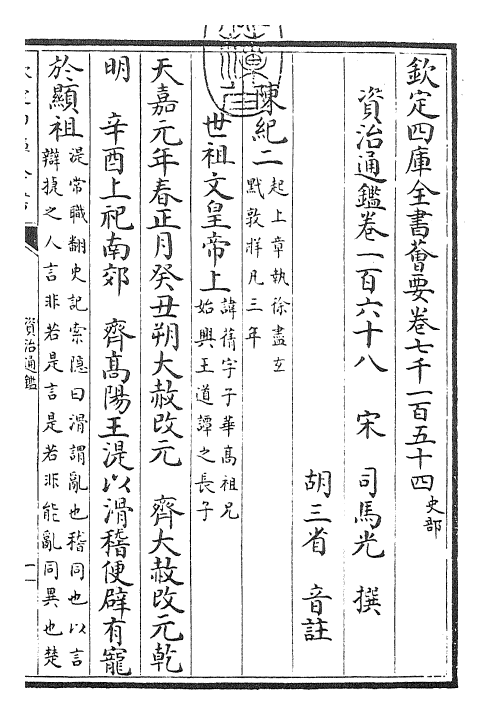 欽定四庫全書薈要卷七千一百五十四史部
資治通鑑卷一百六十八 宋 司馬光 撰
胡三省 音註
陳紀二起上章執徐盡玄
黓敦牂凡三年
世祖文皇帝上諱蒨字子華高祖兄
始興王道譚之長子
天嘉元年春正月癸丑朔大赦改元 齊大赦改元乾
明 辛酉上祀南郊 齊高陽王湜以滑稽便辟有寵
於顯祖湜常職翻史記索隐曰滑謂亂也稽同也以言
辯㨗之人言非若是言是若非能亂同異也楚
資治通鑑
一